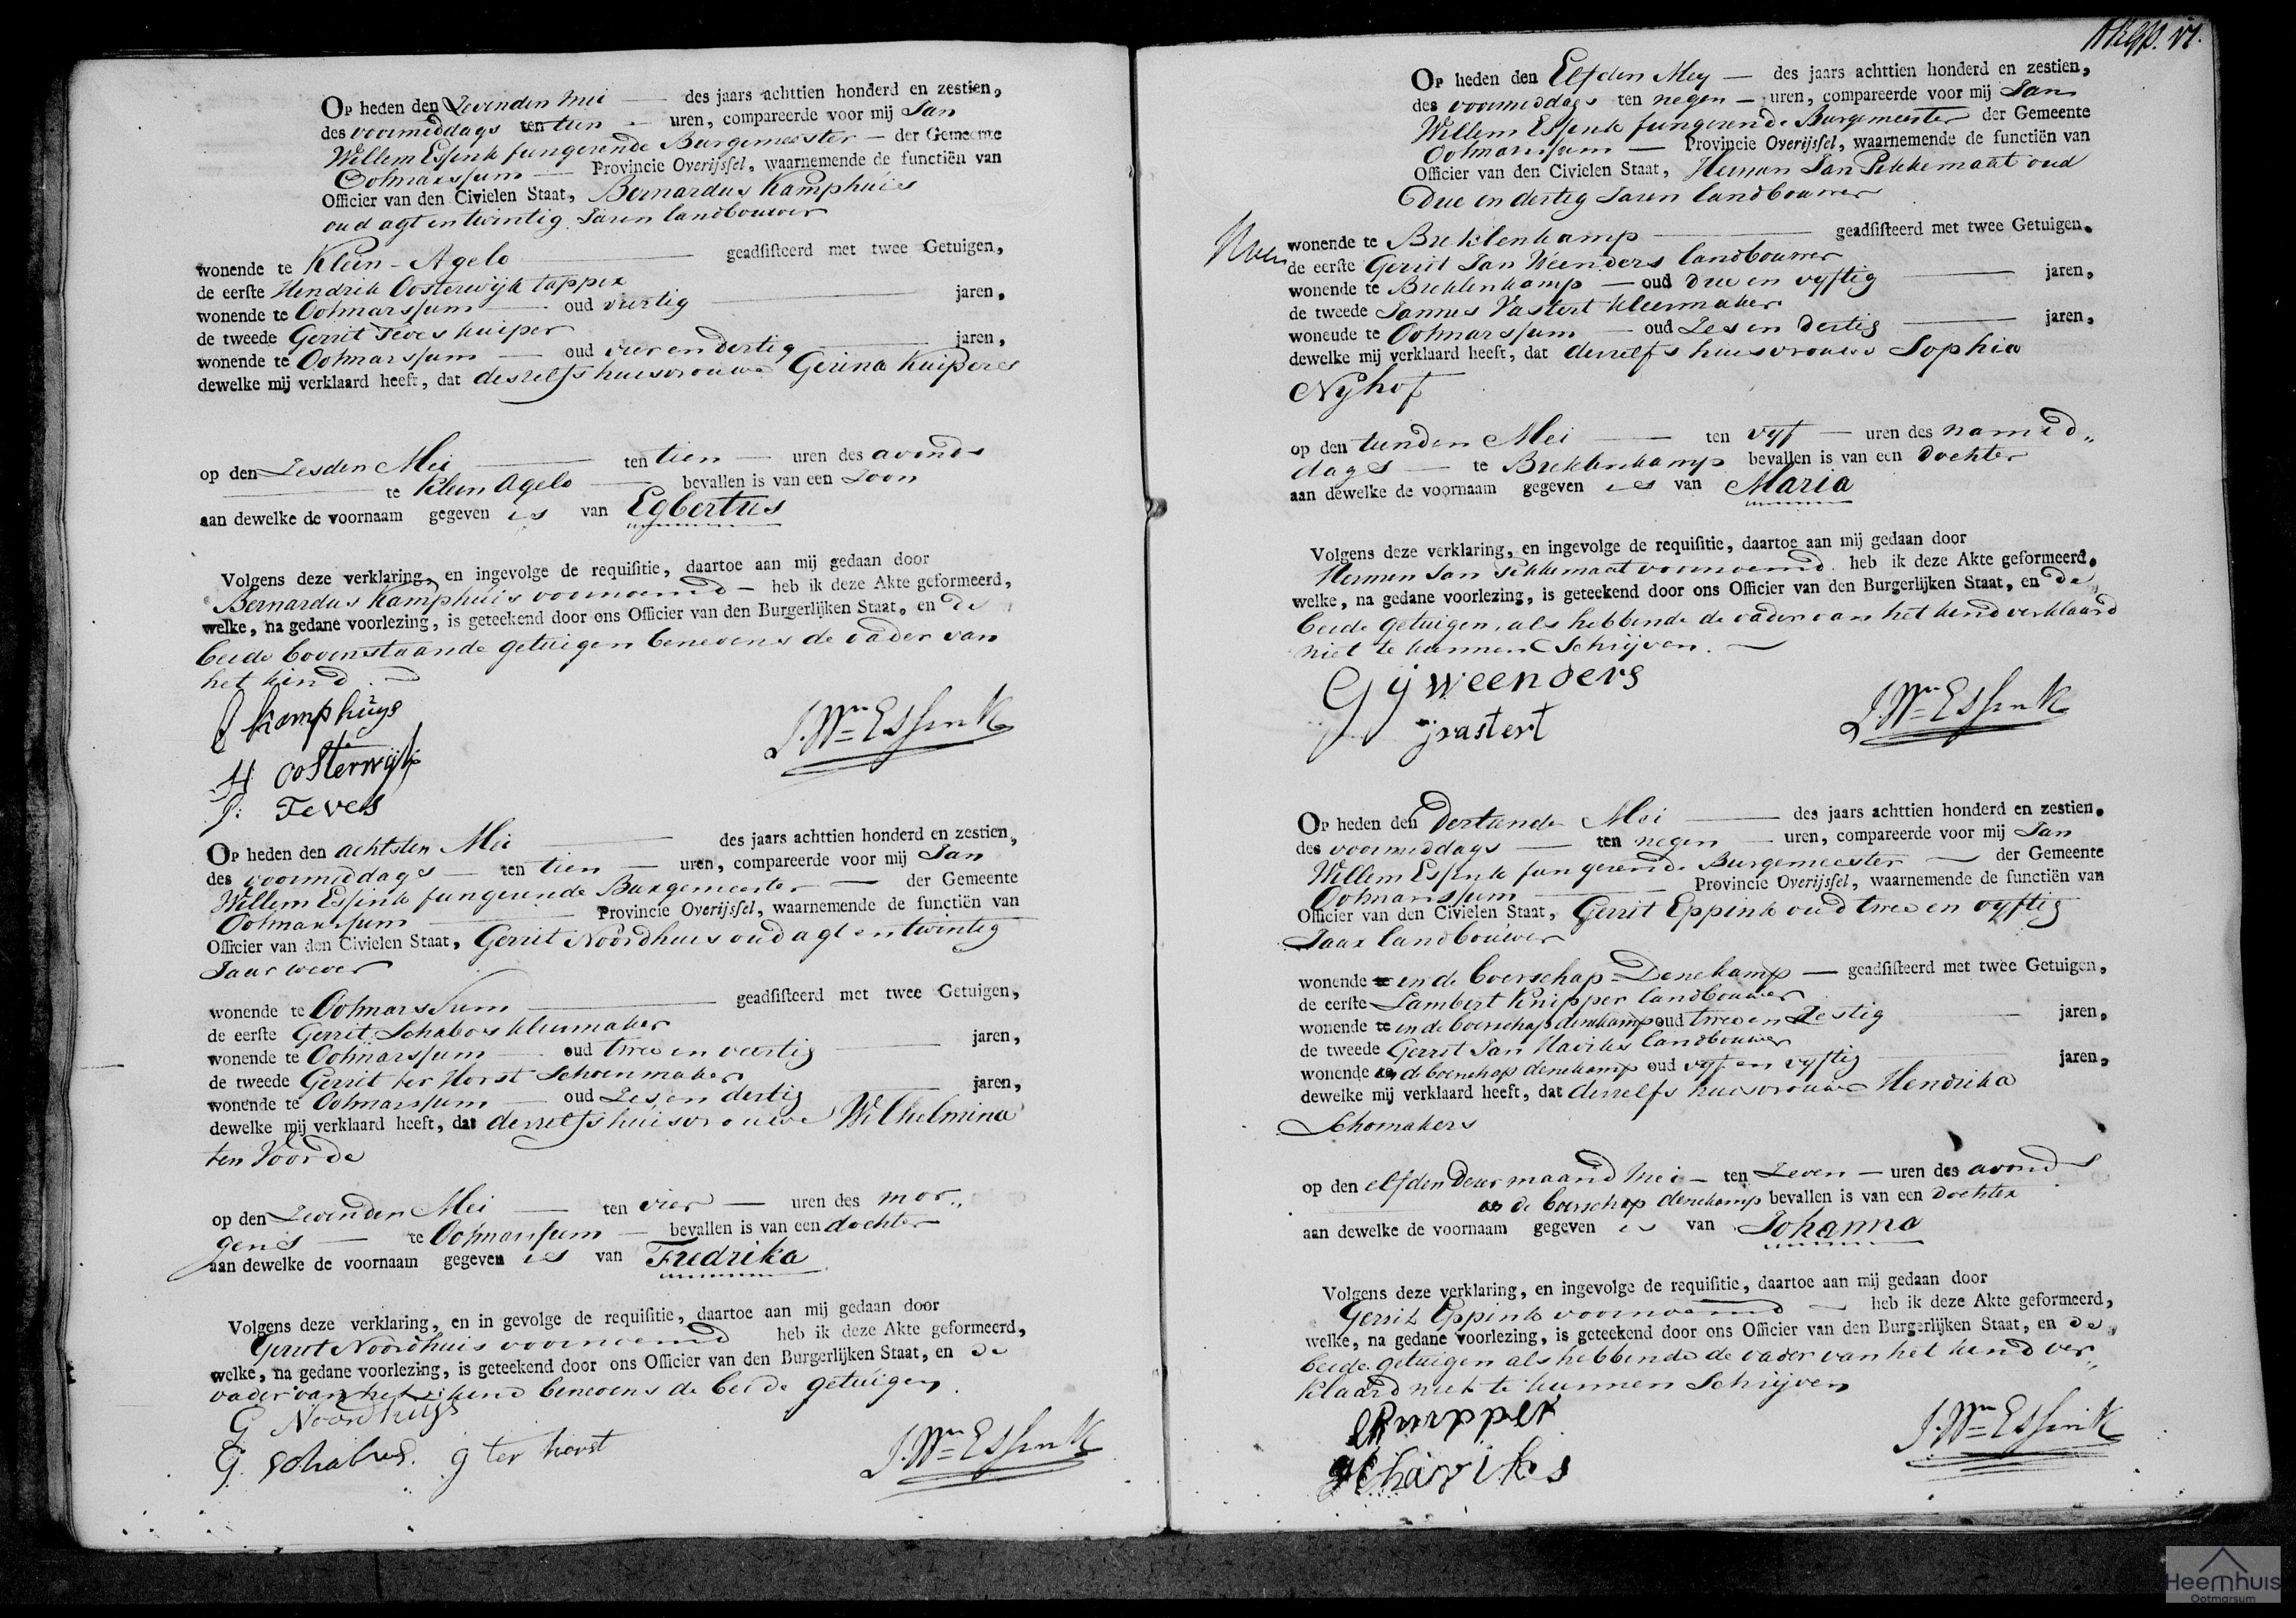 Op heden den Zevenden Mei — des jaars achttien honderd en zestien,
des voormiddags ten tien — uren, compareerde voor mij Jan
Willem Essink fungerende Burgemeester — der Gemeente
Ootmarssum — Provincie Overijssel, waarnemende de functiën van
Officier van den Civielen Staat, Bernardus Kamphuis
oud agt en twintig Jaren landbouwer
wonende te Klein-Agelo — geadsisteerd met twee Getuigen,
de eerste Hendrik Oosterwijk tapper
wonende te Ootmarssum — oud viertig — jaren,
de tweede Gerrit Teves kuiper
wonende te Ootmarssum — oud vier en dertig — jaren,
dewelke mij verklaard heeft, dat deszelfs huisvrouwe Gerina Kuipers
op den Zesden Mei — ten tien — uren des avonds
— te Klein Agelo — bevallen is van een Zoon
aan dewelke de voornaam gegeven is van Egbertus
Volgens deze verklaring, en ingevolge de requisitie, daartoe aan mij gedaan door
Bernardus Kamphuis voornoemd — heb ik deze Akte geformeerd,
welke, na gedane voorlezing, is geteekend door ons Officier van den Burgerlijken Staat, en de
beide bovenstaande getuigen benevens de vader van
het kind.
Kamphuys
J. Wm Essink
H Oosterwijk
Teves
Op heden den achtsten Mei — des jaars achttien honderd en zestien,
des voormiddags — ten tien — uren, compareerde voor mij Jan
Willem Essink fungerende Burgemeester — der Gemeente
Ootmarssum — Provincie Overijssel, waarnemende de functiën van
Officier van den Civielen Staat, Gerrit Noordhuis oud agt en twintig
Jaar wever
wonende te Ootmarssum — geadsisteerd met twee Getuigen,
de eerste Gerrit Schabos kleermaker
wonende te Ootmarssum — oud twee en veertig — jaren,
de tweede Gerrit ter Horst Schoenmaker
wonende te Ootmarssum — oud Zes en dertig — jaren,
dewelke mij verklaard heeft, dat deszelfs huisvrouwe Wilhelmina
ten Voorde
op den Zevenden Mei — ten vier — uren des mor„
gens — te Ootmarssum — bevallen is van een dochter
aan dewelke de voornaam gegeven is van Fredrika
Volgens deze verklaring, en in gevolge de requisitie, daartoe aan mij gedaan door
Gerrit Noordhuis voornoemd heb ik deze Akte geformeerd,
welke, na gedane voorlezing, is geteekend door ons Officier van den Burgerlijken Staat, en de
vader van het kind benevens de beide getuigen.
G Noordhuys
G. Schabus. g ter horst
J. Wm Essink
Op heden den Elfden Mey — des jaars achttien honderd en zestien,
des voormiddags ten negen — uren, compareerde voor mij Jan
Willem Essink fungerende Burgemeester der Gemeente
Ootmarssum — Provincie Overijssel, waarnemende de functiën van
Officier van den Civielen Staat, Herman Jan Pikkemaat oud
Drie en dertig Jaren landbouwer
wonende te Breklenkamp — geadsisteerd met twee Getuigen,
de eerste Gerrit Jan Weenders landbouwer
wonende te Breklenkamp — oud drie en vyftig — jaren,
de tweede Jannes Vastert kleermaker
wonende te Ootmarssum — oud Zes en dertig — jaren,
dewelke mij verklaard heeft, dat deszelfs huisvrouwe Sophia
Nyhof
op den tienden Mei — ten vyf — uren des namid„
dags — te Breklenkamp bevallen is van een dochter
aan dewelke de voornaam gegeven is van Maria
Volgens deze verklaring, en ingevolge de requisitie, daartoe aan mij gedaan door
Hermen Jan Pikkemaat voornoemd heb ik deze Akte geformeerd,
welke, na gedane voorlezing, is geteekend door ons Officier van den Burgerlijken Staat, en de
beide getuigen, als hebbende de vader van het kind verklaard
niet te kunnen Schrijven. —
G J Weenders
J. Wm Essink
J vastert
Op heden den dertiende Mei — des jaars achttien honderd en zestien,
des voormiddags — ten negen — uren, compareerde voor mij Jan
Willem Essink fungerende Burgemeester — der Gemeente
Ootmarssum — Provincie Overijssel, waarnemende de functiën van
Officier van den Civielen Staat, Gerrit Eppink oud twee en vyftig
Jaar landbouwer
wonende in de boerschap Denekamp — geadsisteerd met twee Getuigen,
de eerste Lambert Knipper landbouwer
wonende te in de boerschap denekamp oud twee en Zestig — jaren,
de tweede Gerrit Jan Haviks landbouwer
wonende in de boerschap denekamp oud vyf en vyftig — jaren,
dewelke mij verklaard heeft, dat deszelfs huisvrouwe Hendrika
Schomakers
op den elfden dezer maand Mei — ten Zeven — uren des avonds
in de boerschap denekamp bevallen is van een dochter
aan dewelke de voornaam gegeven is van Johanna
Volgens deze verklaring, en ingevolge de requisitie, daartoe aan mij gedaan door
Gerrit Eppink voornoemd — heb ik deze Akte geformeerd,
welke, na gedane voorlezing, is geteekend door ons Officier van den Burgerlijken Staat, en de
beide getuigen als hebbende de vader van het kind ver„
klaard niet te kunnen Schrijven
Knipper
J. Wm Essink
haviks
Heemhuis
Ootmarsum